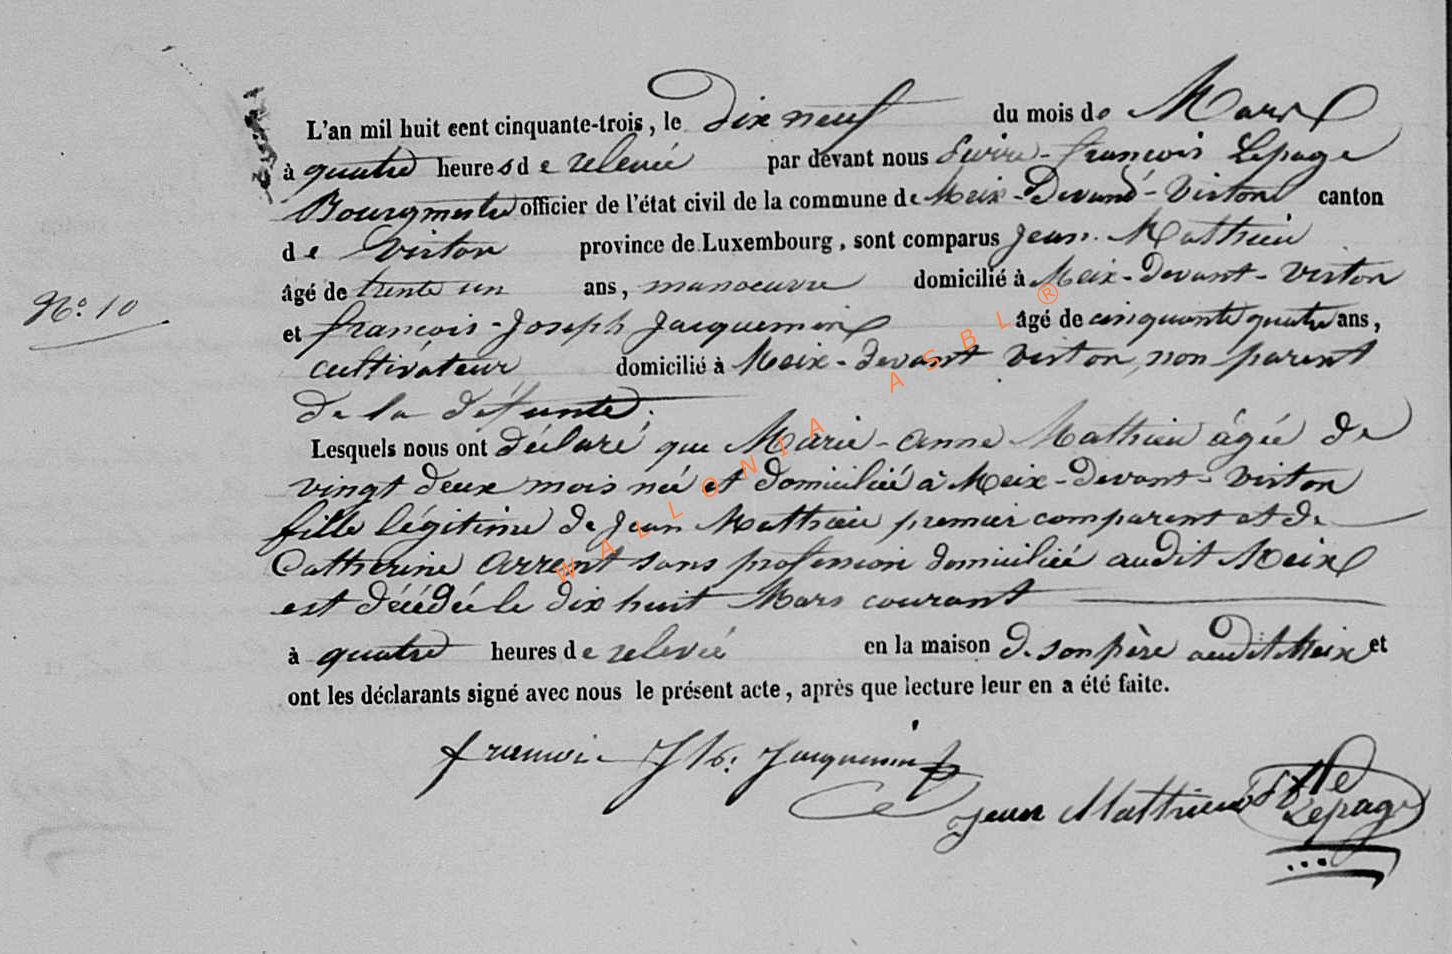 L'an mil huit cent cinquante-trois, le dix neuf du mois de Mars
à quatre heures de relevée par devant nous François Lepage
Bourgmestre officier de l'état civil de la commune de Meix-Devant-Virton canton
de Virton province de Luxembourg, sont comparus Jean Mathieu
âgé de trente un ans, manoeuvre domicilié à Meix-devant-Virton
N° 10
et françois-Joseph Jacquemin âgé de cinquante quatre ans,
cultivateur domicilié à Meix-devant Virton, non parent
de la défunte.
Lesquels nous ont déclaré que Marie-anne Mathieu âgée de
vingt deux mois née et domiciliée à Meix-devant-Virton
fille légitime de Jean Mathieu premier comparent et de
Catherine Arrent sans profession domiciliée audit Meix
est décédée le dix huit Mars courant
à quatre heures de relevée en la maison de son père audit Meix et
ont les déclarants signé avec nous le présent acte, après que lecture leur en a été faite.
Jacquemin
Jean Mathieu Lepage
WALLONIA ASBL ®